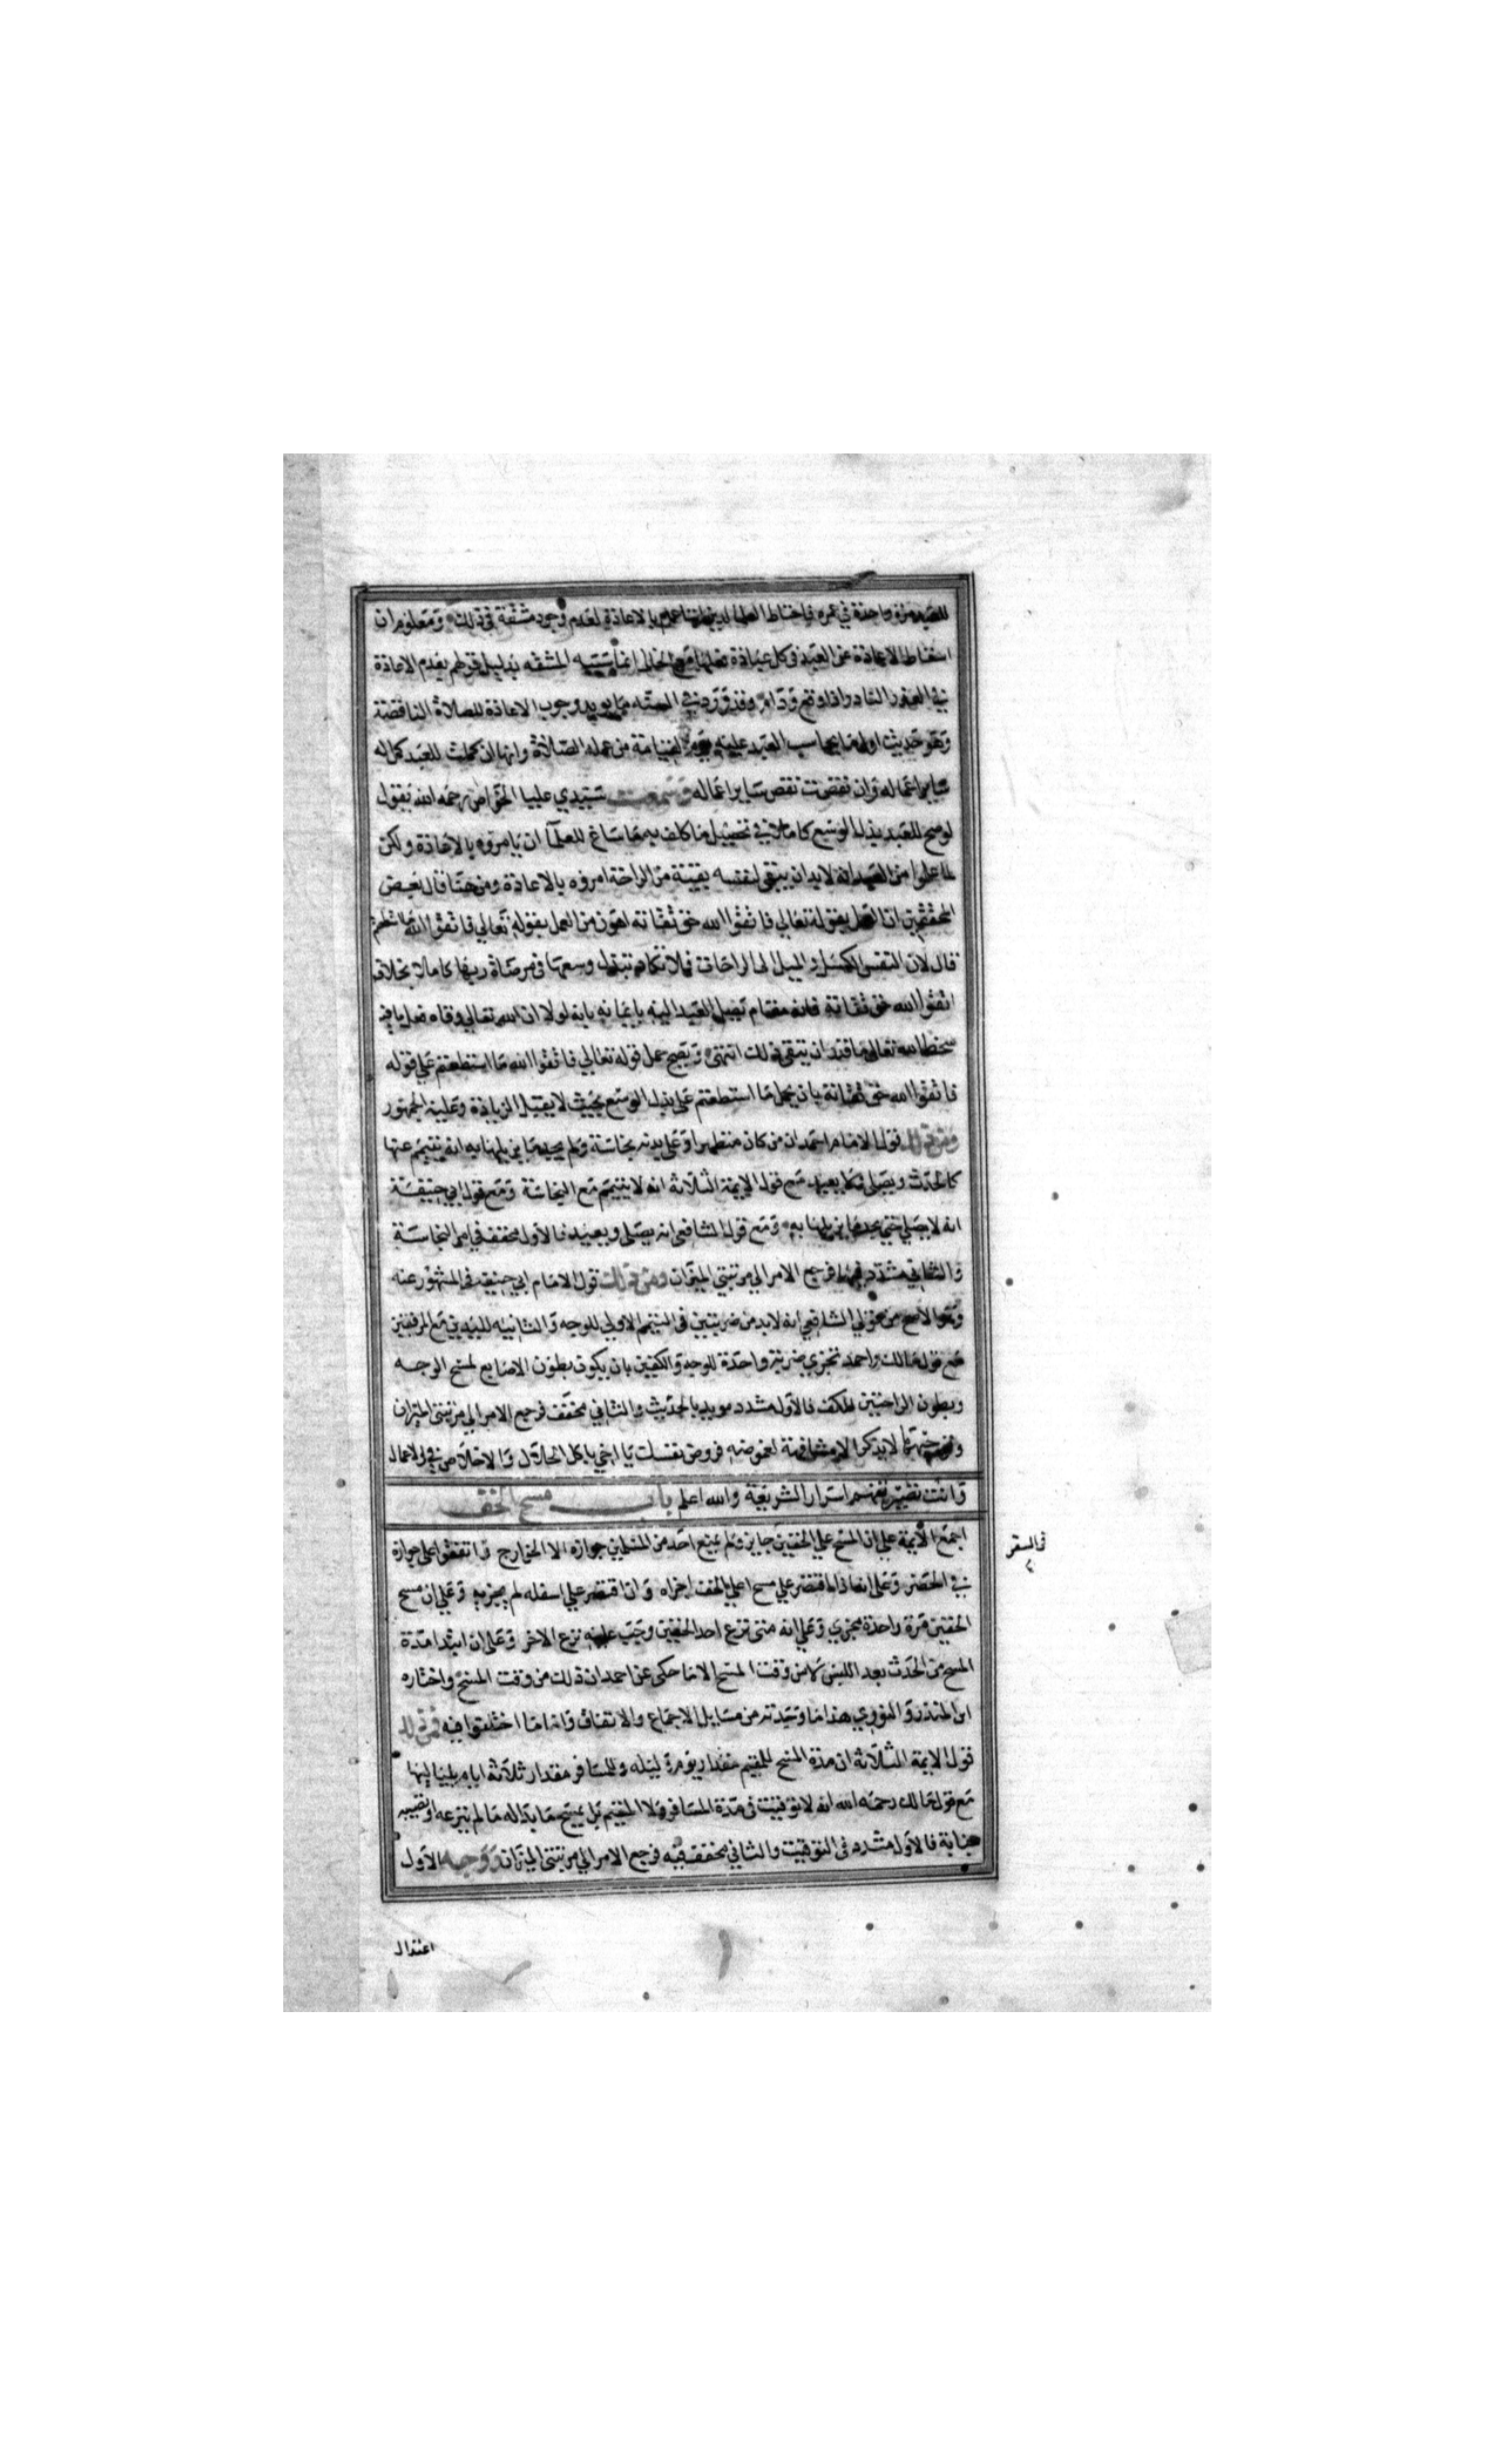 للعبد مرة واحدة في عمره فاحتاط العلما لدينها بالاعادة لعدم وجود مشقة في ذلك ومعلوم ان
اسقاط الاعادة عن العبد في كل عبادة فعلها مع الخلل انما سببه المشقه بدليل قولهم بعدم الاعادة
في العذر النادر اذا وقع ودام وقد ورد في السنه ما يويد وجوب الاعادة للصلاة الناقصة
وهو حديث اول ما يحاسب العبد عليه يوم القيامة من عمله الصلاة وانها ان كملت للعبد كمل له
ساير اعماله وان نقصت نقص ساير اعماله وسمعت سيدي عليا الخواص رحمه الله يقول
لو صح للعبد بذل الوسع كاملا في تحصيل ما كلف به ما ساغ للعلمآ ان يامروه بالاعادة ولكن
لما علموا من العبد انه لابد ان يبقي لنفسه بقية من الراحة امروه بالاعادة ومن هنا قال بعض
المحققين ان العمل بقوله تعالي فاتقوا الله حق تقاته اهون من العمل بقوله تعالي فاتقوا الله ما استطعتم
قال لان النفس الكسل و الميل الى الراحات فلا تكاد تبذل وسعها في مرضاة ربها كاملا بخلاف
اتقوا الله حق تقاته فانه مقام يصل العبد اليه بايمانه بانه لولا ان الله تعالي وقاه فعل ما فيه
سخط الله تعالى ما قدر ان يتقى ذلك انتهى ويصح حمل قوله تعالي فاتقوا الله ما استطعتم علي قوله
فاتقوا الله حق تقاته بان يحمل ما استطعتم على بذل الوسع بحيث لا يقبل الزيادة وعليه الجمهور
ومن ذلك قول الامام احمد ان من كان متطهرا وعلى بدنه نجاسة ولم يجد ما يزيلها به انه يتيمم عنها
كالحدث ويصلى ولا يعيد مع قول الايمة الثلاثه انه لا يتيمم مع النجاسة ومع قول ابي حنيفة
انه لا يصلي حتي يجد ما يزيلها به ومع قول الشافعي انه يصلى ويعيد فالاول مخفف في امر النجاسة
والثاني مشدد فيها فرجع الامر الي مرتبتي الميزان ومن ذلك قول الامام ابي حنيفه في المشهور عنه
وهو الاصح من قولي الشافعي انه لابد من ضربتين في التيمم الاولي للوجه والثانيه لليدين مع المرفقين
مع قول مالك واحمد تجزي ضربة واحدة للوجه والكفين بان يكون بطون الاصابع لمسح الوجه
وبطون الراحتين للكف فالاول مشدد مويد بالحديث والثاني مخفف فرجع الامر الي مرتبتي الميزان
لا يذكر الا مشافهة لغموضه فروض نفسك يا اخي باكل الحلال والاخلاص في الاعمال
وانت تصير تفهم اسرار الشريعة والله اعلم باب مسح الخف
اجمع الايمة علي ان المسح علي الخفين جايز ولم يمنع احد من المسلمين جوازه الا الخوارج واتفقوا علي جوازه
في السفر
في الحضر وعلى انه اذا اقتصر علي مسح اعلي الخف اجزاه وان اقتصر علي اسفله لم يجزيه وعلي ان مسح
الخفين مرة واحدة مجزي وعلي انه متى نزع احد الخفين وجب عليه نزع الاخر وعلى ان ابتدا مدة
المسح من الحدث بعد اللبس لا من وقت المسح الا ما حكى عن احمد ان ذلك من وقت المسح واختاره
ابن المنذر والنووي هذا ما وجدته من مسايل الاجماع والاتفاق واما ما اختلفوا فيه فمن ذلك
قول الايمة الثلاثه ان مدة المسح للمقيم مقدار يوم وليله وللمسافر مقدار ثلاثة ايام بلياليها
مع قول مالك رحمه الله انه لا توقيت في مدة المسافر ولا المقيم بل يمسح ما بدا له ما لم ينزعه او تصيبه
جنابة فالاول مشدد في التوقيت والثاني مخفف فيه فرجع الامر الي مرتبتي الميزان ووجه الاول
اعتدال